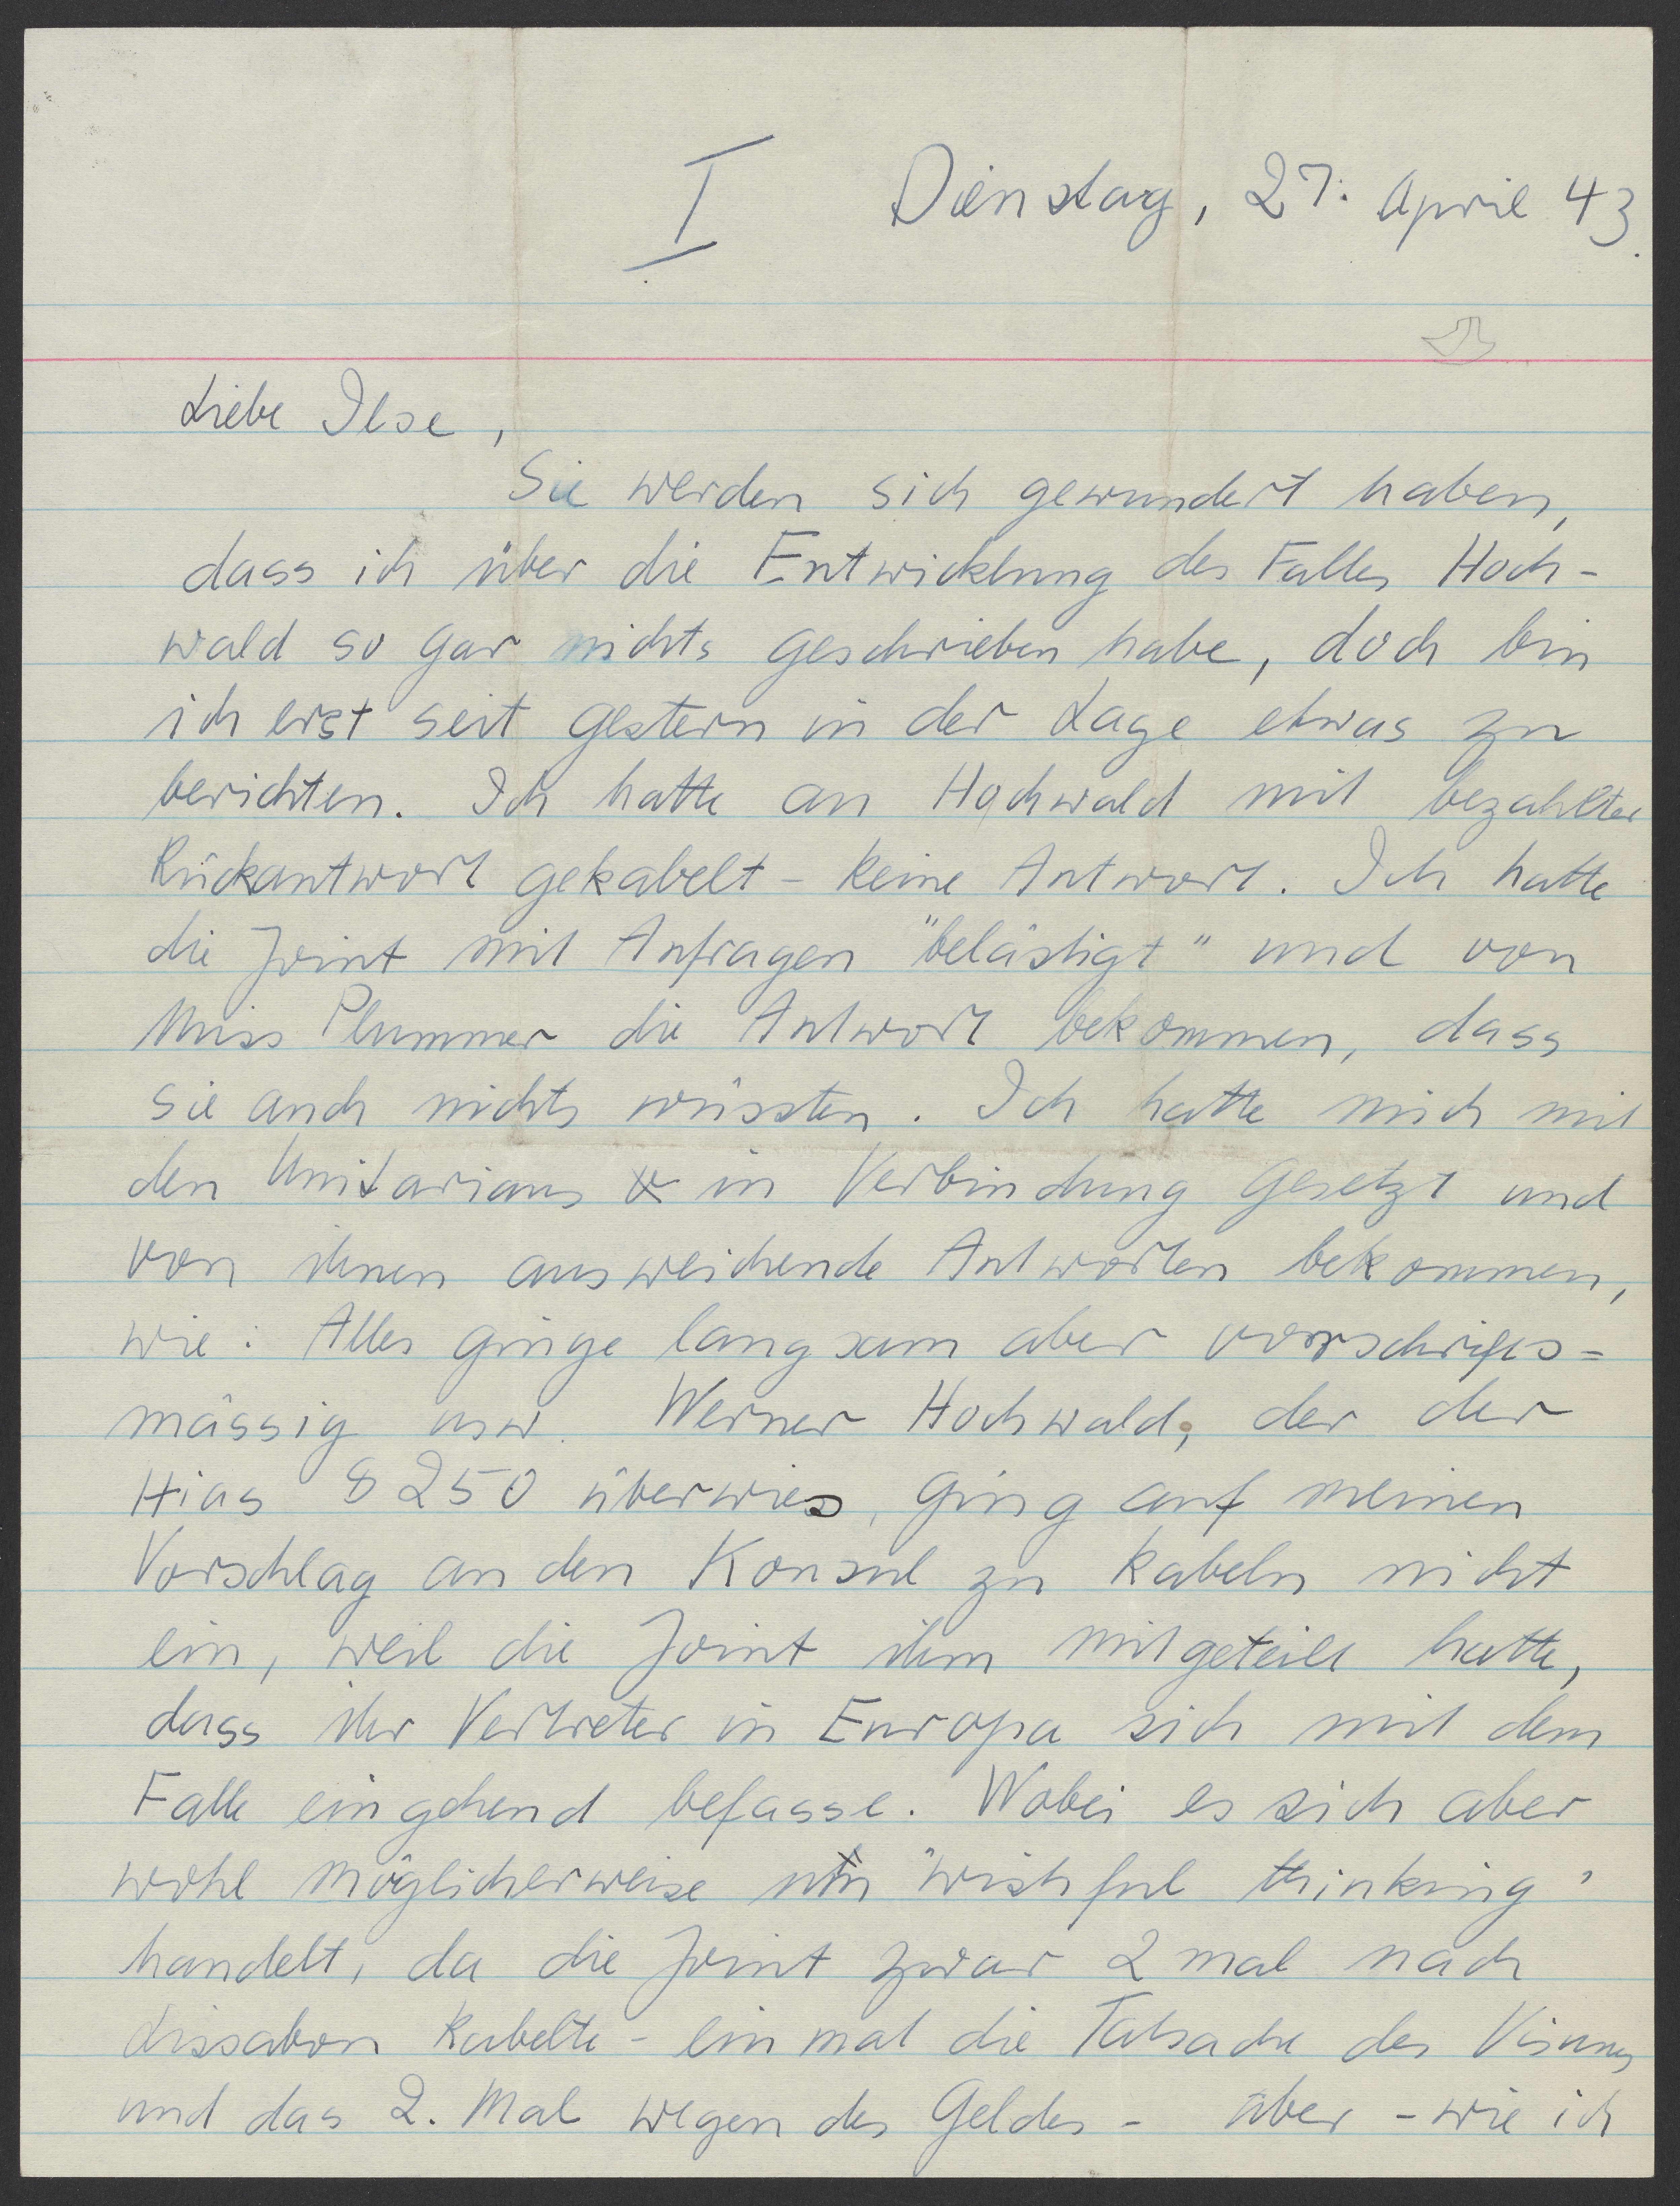 I Dienstag, 27. April 43.
Liebe Ilse,
Sie werden sich gewundert haben,
dass ich über die Entwicklung des Falles Hoch-
wald so gar nichts geschrieben habe, doch bin
ich erst seit gestern in der Lage etwas zu
berichten. Ich hatte an Hochwald mit bezahlter
Rückantwort gekabelt - keine Antwort. Ich hatte
die Joint mit Anfragen "belästigt" und von
Miss Plummer die Antwort bekommen, dass
sie auch nichts wüssten. Ich hatte mich mit
den Unitarians in Verbindung gesetzt und
von ihnen ausweichende Antworten bekommen,
wie: Alles ginge langsam aber vorschrifts=
mässig usw. Werner Hochwald, der der
Hias $ 250 überwies, ging auf meinen
Vorschlag an den Konsul zu kabeln nicht
ein, weil die Joint ihm mitgeteilt hatte,
dass ihr Vertreter in Europa sich mit dem
Falle eingehend befasse. Wobei es sich aber
wohl möglicherweise um "wishful thinking"
handelt, da die Joint zwar 2 mal nach
Lissabon kabelte - ein mal die Tatsache des Visums
und das 2. Mal wegen des Geldes - aber - wie ich